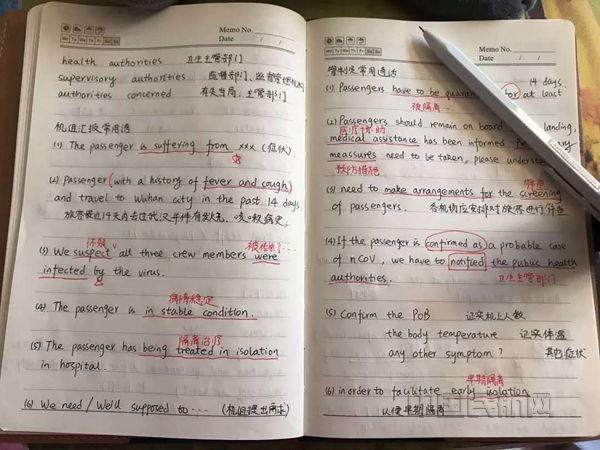 Memo No.
Date / /
Mo Tu We Th Fr Sa Su
health authorities 卫生主管部门
supervisory authorities 监督部门、监督管理机构
authorities concerned 有关当局；主管部门
机组汇报常用语
(1) The passenger is suffering from xxx (症状).
患
(2) Passenger (with a history of fever and cough)
and travel to Wuhan city in the past 14 days.
旅客最近14天内去过武汉并伴有发烧、咳嗽病史；
怀疑 被传染了…
(3) We suspect all three crew members were
infected by the virus.
病情稳定
(4) The passenger is in stable condition.
隔离治疗
(5) The passenger has being treated in isolation
in hospital.
(6) We need / We'll supposed to … (机组提出需求)
Memo No.
Date / /
Mo Tu We Th Fr Sa Su
管制员常用语
14 days.
(1) Passengers have to be for at least
被隔离
(2) Passengers should remain on board landing,
医疗协助
medical assistance has been informed.
measures need to be taken, please
预防措施
(3) need to make arrangements for the screening
筛查
of passengers. 各机场应安排对旅客进行筛查
(4) If the passenger is confirmed as a probable case
of nCOV, we have to notified the public health
authorities. 卫生主管部门
(5) Confirm the POB 证实机上人数
the body temperature 证实体温
any other symptom? 其它症状
早期隔离
(6) in order to facilitate early isolation
以便早期隔离
国民航网